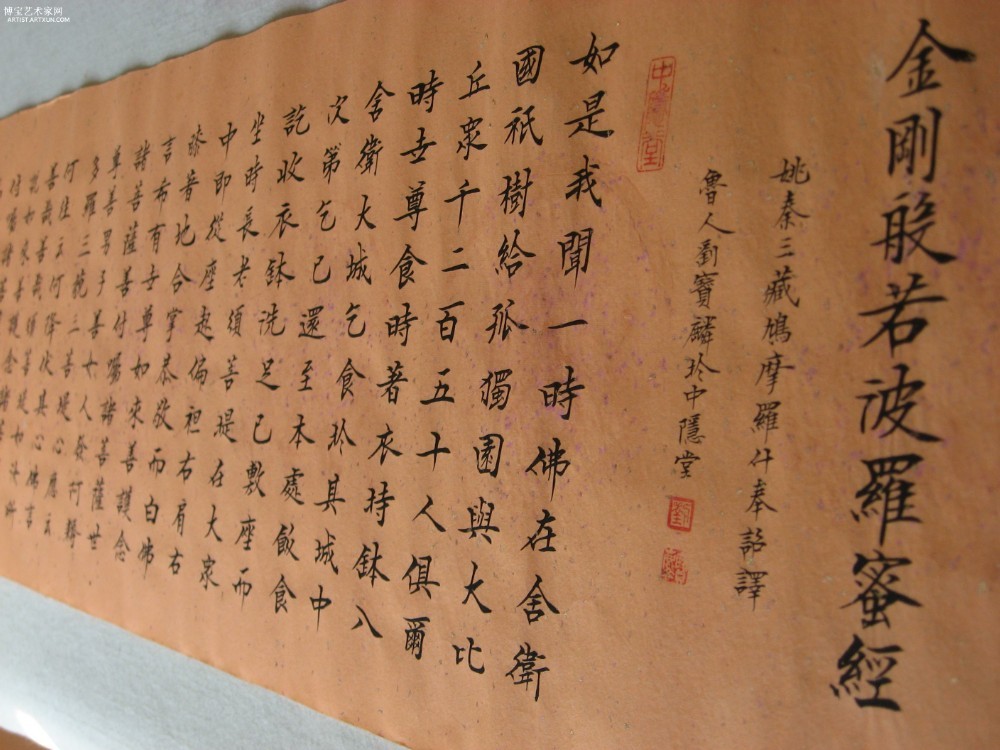 博宝艺术家网
ARTIST.ARTXUN.COM
金剛般若波羅蜜經
姚秦三藏鳩摩羅什奉詔譯
魯人劉寶麟於中隱堂
劉
中隱堂
如是我聞一時佛在舍衛
國祇樹給孤獨園與大比
丘眾千二百五十人俱爾
時世尊食時著衣持鉢入
舍衛大城乞食於其城中
次第乞已還至本處飯食
訖收衣鉢洗足已敷座而
坐時長老須菩提在大眾
中即從座起偏袒右肩右
膝著地合掌恭敬而白佛
言希有世尊如來善護念
諸菩薩善付囑諸菩薩世
尊善男子善女人發阿耨
多羅三藐三菩提心應云
何住云何降伏其心佛言
善哉善哉須菩提如汝所
說如來善護念諸菩
付囑諸菩